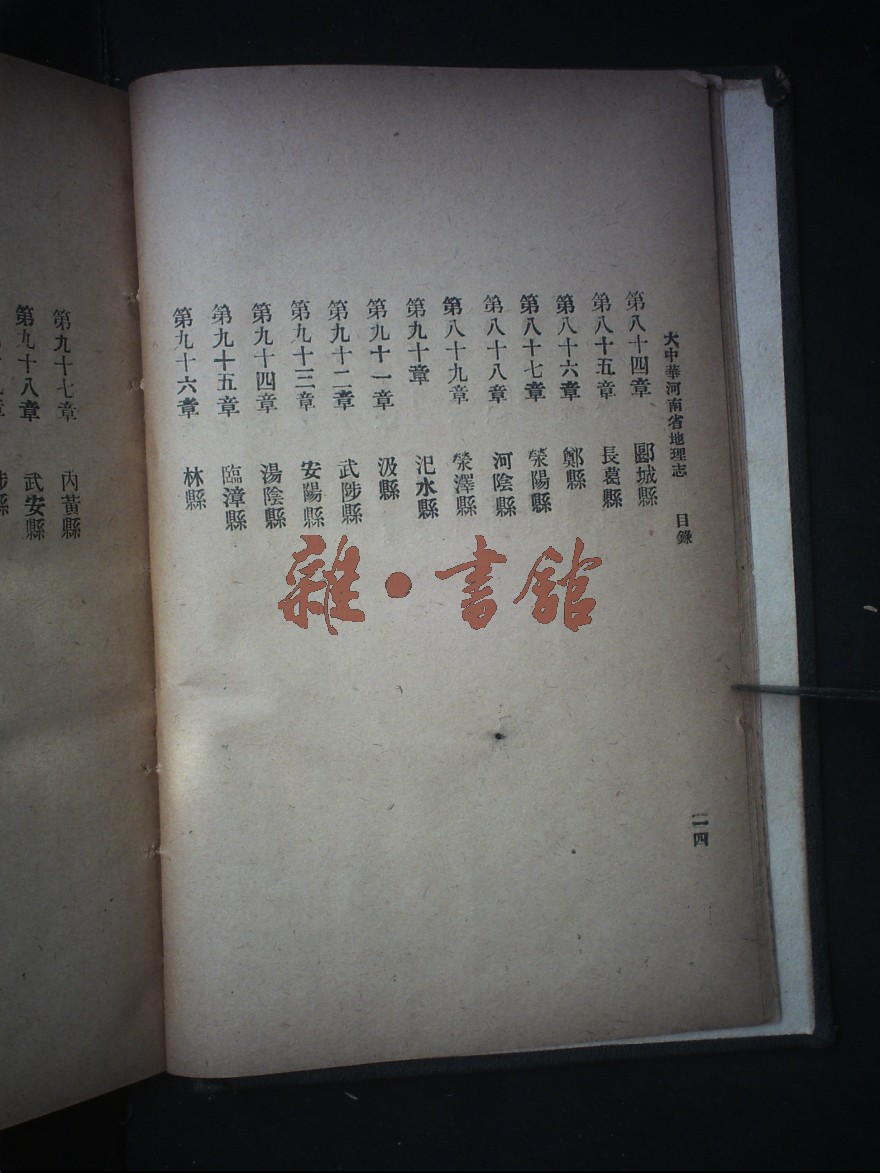 大中華河南省地理志　目錄
二四
第八十四章　郾城縣
第八十五章　長葛縣
第八十六章　鄭縣
第八十七章　滎陽縣
第八十八章　河陰縣
第八十九章　滎澤縣
第九十章　汜水縣
第九十一章　汲縣
第九十二章　武陟縣
第九十三章　安陽縣
第九十四章　湯陰縣
第九十五章　臨漳縣
第九十六章　林縣
第九十七章　內黃縣
第九十八章　武安縣
章　涉縣
雜·書館